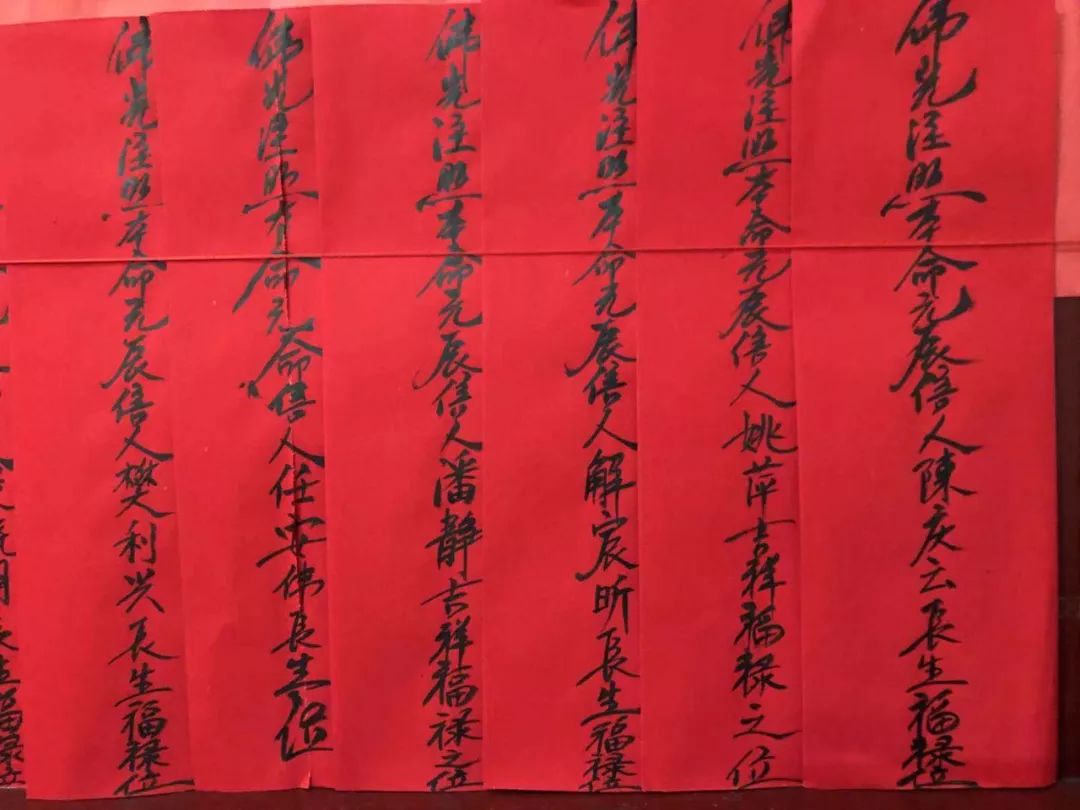 佛光注照本命元辰信人陳庆云長生福禄位
佛光注照本命元辰信人姚萍吉祥福禄之位
佛光注照本命元辰信人解宸昕長生福禄
佛光注照本命元辰信人潘静吉祥福禄之位
佛光注照本命元命信人任安佛長生位
佛光注照本命元辰信人樊利兴長生福禄位
長生福禄位